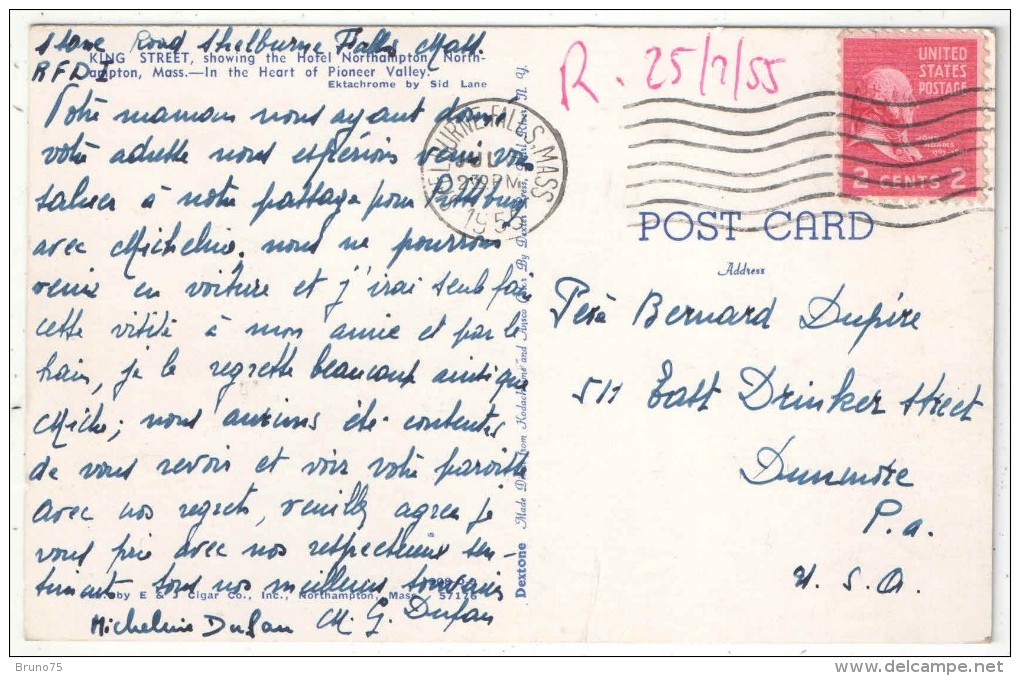 Stone Road Shelburne Falls Mass.
RFD I
KING STREET, showing the Hotel Northampton, North-
ampton, Mass.—In the Heart of Pioneer Valley.
Ektachrome by Sid Lane
Votre maman nous ayant donné
votre adresse nous espérions venir vous
saluer à notre passage pour Pittsburg
avec Micheline. nous ne pourrons
venir en voiture et j'irai seule faire
cette visite à mon amie et par le
train, je le regrette beaucoup ainsi que
Miche; nous aurions été contentes
de vous revoir et voir votre paroisse
avec nos regrets, veuillez agréer je
vous prie avec nos respectueux sen-
timents tous nos meilleurs souvenirs
by E & J Cigar Co., Inc., Northampton, Mass. 57176
Micheline Dufau M. G. Dufau
Dextone Made Direct from Kodachrome and Ansco Color By Dexter Press, Pearl River, N. Y.
SHELBURNE FALLS, MASS
JUL
2 PM
1955
R. 25/7/55
UNITED
STATES
POSTAGE
JOHN
ADAMS
2 CENTS 2
POST CARD
Address
Père Bernard Dupire
511 East Drinker Street
Dunmore
P.a.
U.S.A.
Bruno75
delcampe.net